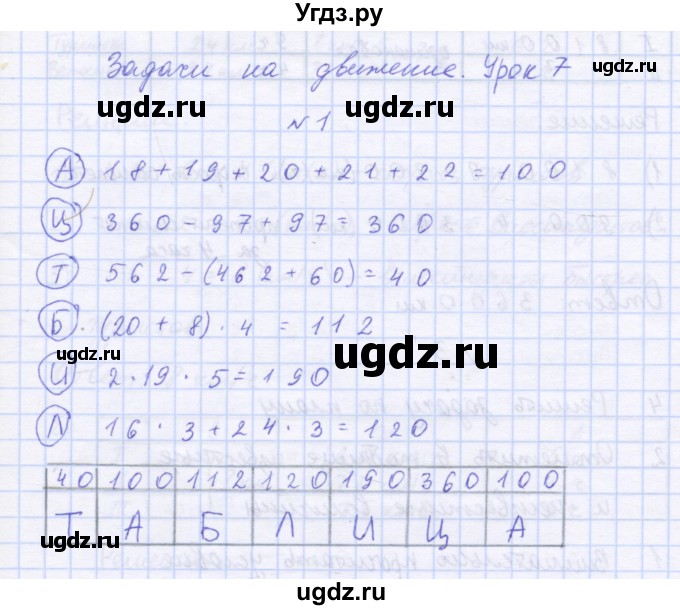 Угдз.ру
Задачи на движение. Урок 7
ugdz.ru ugdz.ru
№ 1
А 18 + 19 + 20 + 21 + 22 = 100
Ц 360 - 97 + 97 = 360
ugdz.ru ugdz.ru
Т 562 - (462 + 60) = 40
Б. (20 + 8) · 4 = 112
ugdz.ru
И 2 · 19 · 5 = 190
Л 16 · 3 + 24 · 3 = 120
40 100 112 120 190 360 100
Т А Б Л И Ц А
ugdz.ru ugdz.ru
ugdz.ru